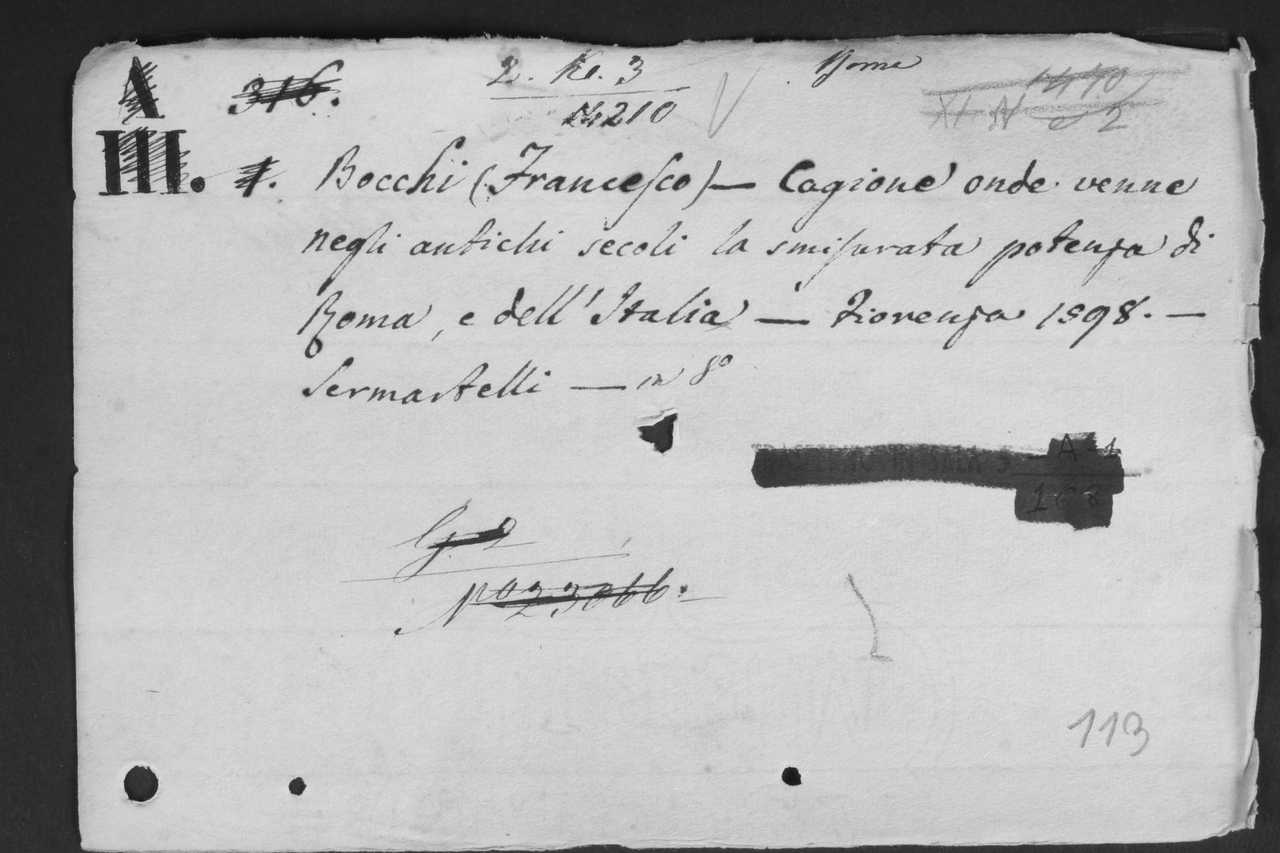 A 316. 2. Ko. 3 Roma 1470
24210 XI A e 2
III. 1. Bocchi (Francesco) — Cagione onde venne
negli antichi secoli la smisurata potenza di
Roma, e dell'Italia — Fiorenza 1598. —
Sermartelli — in 8º
A-1
168
G. 2
Nº 23066.
113